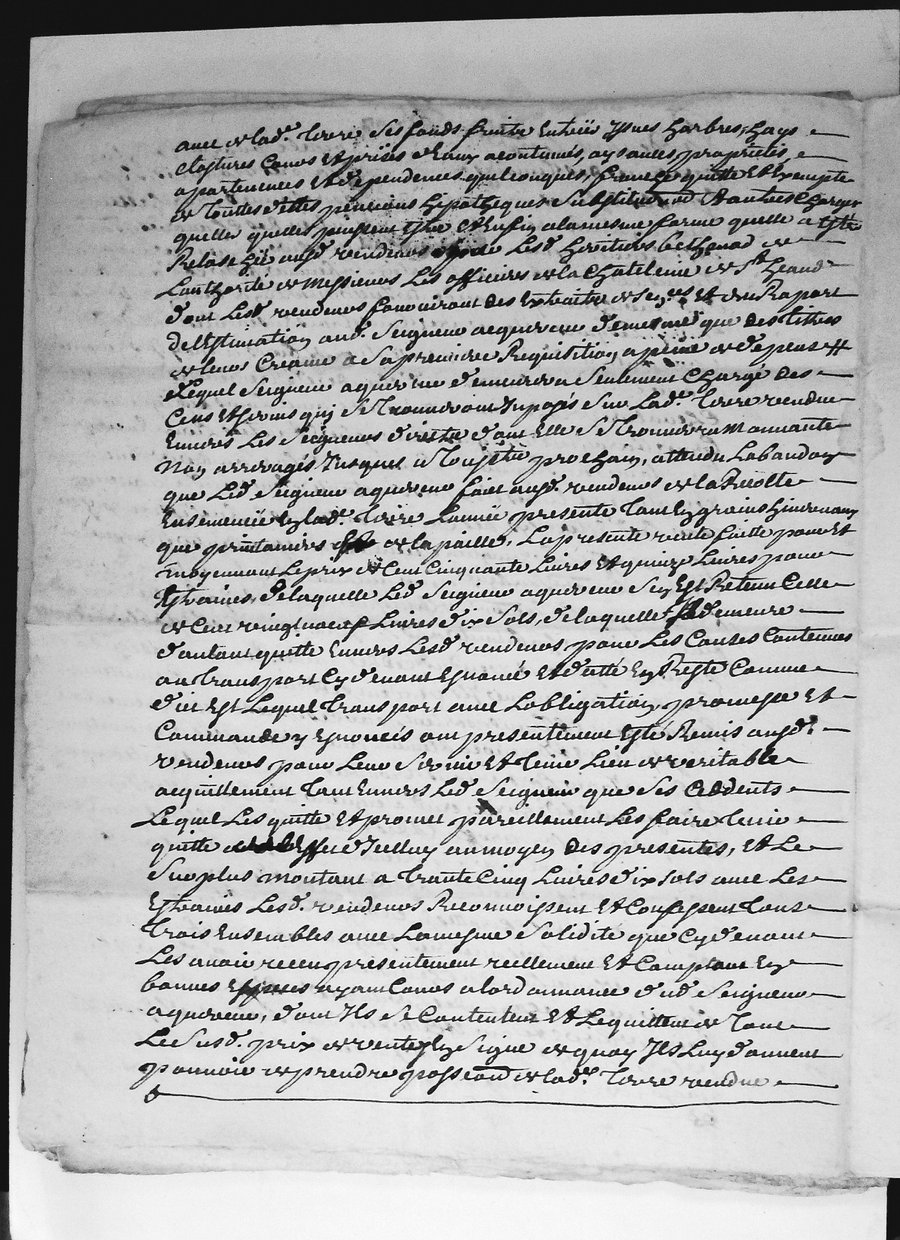 avec de lad.e terre ses fonds fruits Entrée Yssues harbres, hays
Clostures Cours et prises d'Eaux acoutumés, aysances, proprietés,
apartenences et dépendences quelconques, franche quitte et Exempte
de toutes dettes pentions hipotheques Substitution et autres Charges
quelles quelles puissent Estre et Enfin alamesme forme quelle a Esté
Relaschée ausd. vendeurs par Les d. heritiers Bethenod de
Lauthorité de Messieurs Les officiers de la Chatelenie de St heand
dont Lesd. vendeurs fourniront des Extraits de Sen.ces et du Raport
dEstimation aud. Seigneur acquereur d'emesme que des tittres
de leurs Creance a Sa premiere Requisition, a peine de depens #
Lequel Seigneur aquereur d'emeurera Seulement Chargé des
Cens et Servis quy se trouveront Imposés Sur Lad.e terre vendue
Envers Les Seigneurs directs dont Elle Se trouvera Mouvante
Non arreragés Jusques a prochain, attendu Labandon
que Led. Seigneur aquereur fait ausd. vendeurs de la Recolte
Ensemencée En lad.e terre Lannée presente tant En grains hivernaux
que printaniers et de la paille, La presente vente faitte pour Et
moyennant Le prix de Cent Cinquante Livres Et quinze Livres pour
Estraines, d'elaquelle Led. Seigneur aquereur Sen Est Retenu Celle
de Cent vingt neuf Livres dix Sols, d'elaquelle Il d'emeure
d'autant quitte Envers Lesd. vendeurs pour Les Causes Contenues
au transport Cy d'evant Enoncé Et datté En Reste Comme
d'it Est Lequel transport avec Lobligation, promesse Et
Commande y Enoncés ont presentement Esté Remis ausd.
vendeurs pour Leur Servir Et tenir Lieu de veritable
acquittement tant Envers Led. Seigneur que Ses Cedents
Lequel Les quitte Et promet pareillement Les faire tenir
quitte au moyen des presentes, Et Le
Surplus montant a trante Cinq Livres dix Sols avec Les
Estraines Lesd. vendeurs Reconnoissent Et Confessent tous
trois Ensembles avec Lamesme Solidité que Cy d'evant
Les avoir receu presentement reellement Et Comptant En
bonnes Espèces ayant Cours a lordonnance dud. Seigneur
aquereur, d'ont Ils Se Contentent Et Lequittent de tout
Le Susd. prix de vente, En Signe de quoy Ils Luy donnent
pouvoir de prendre possession de lad.e terre vendue